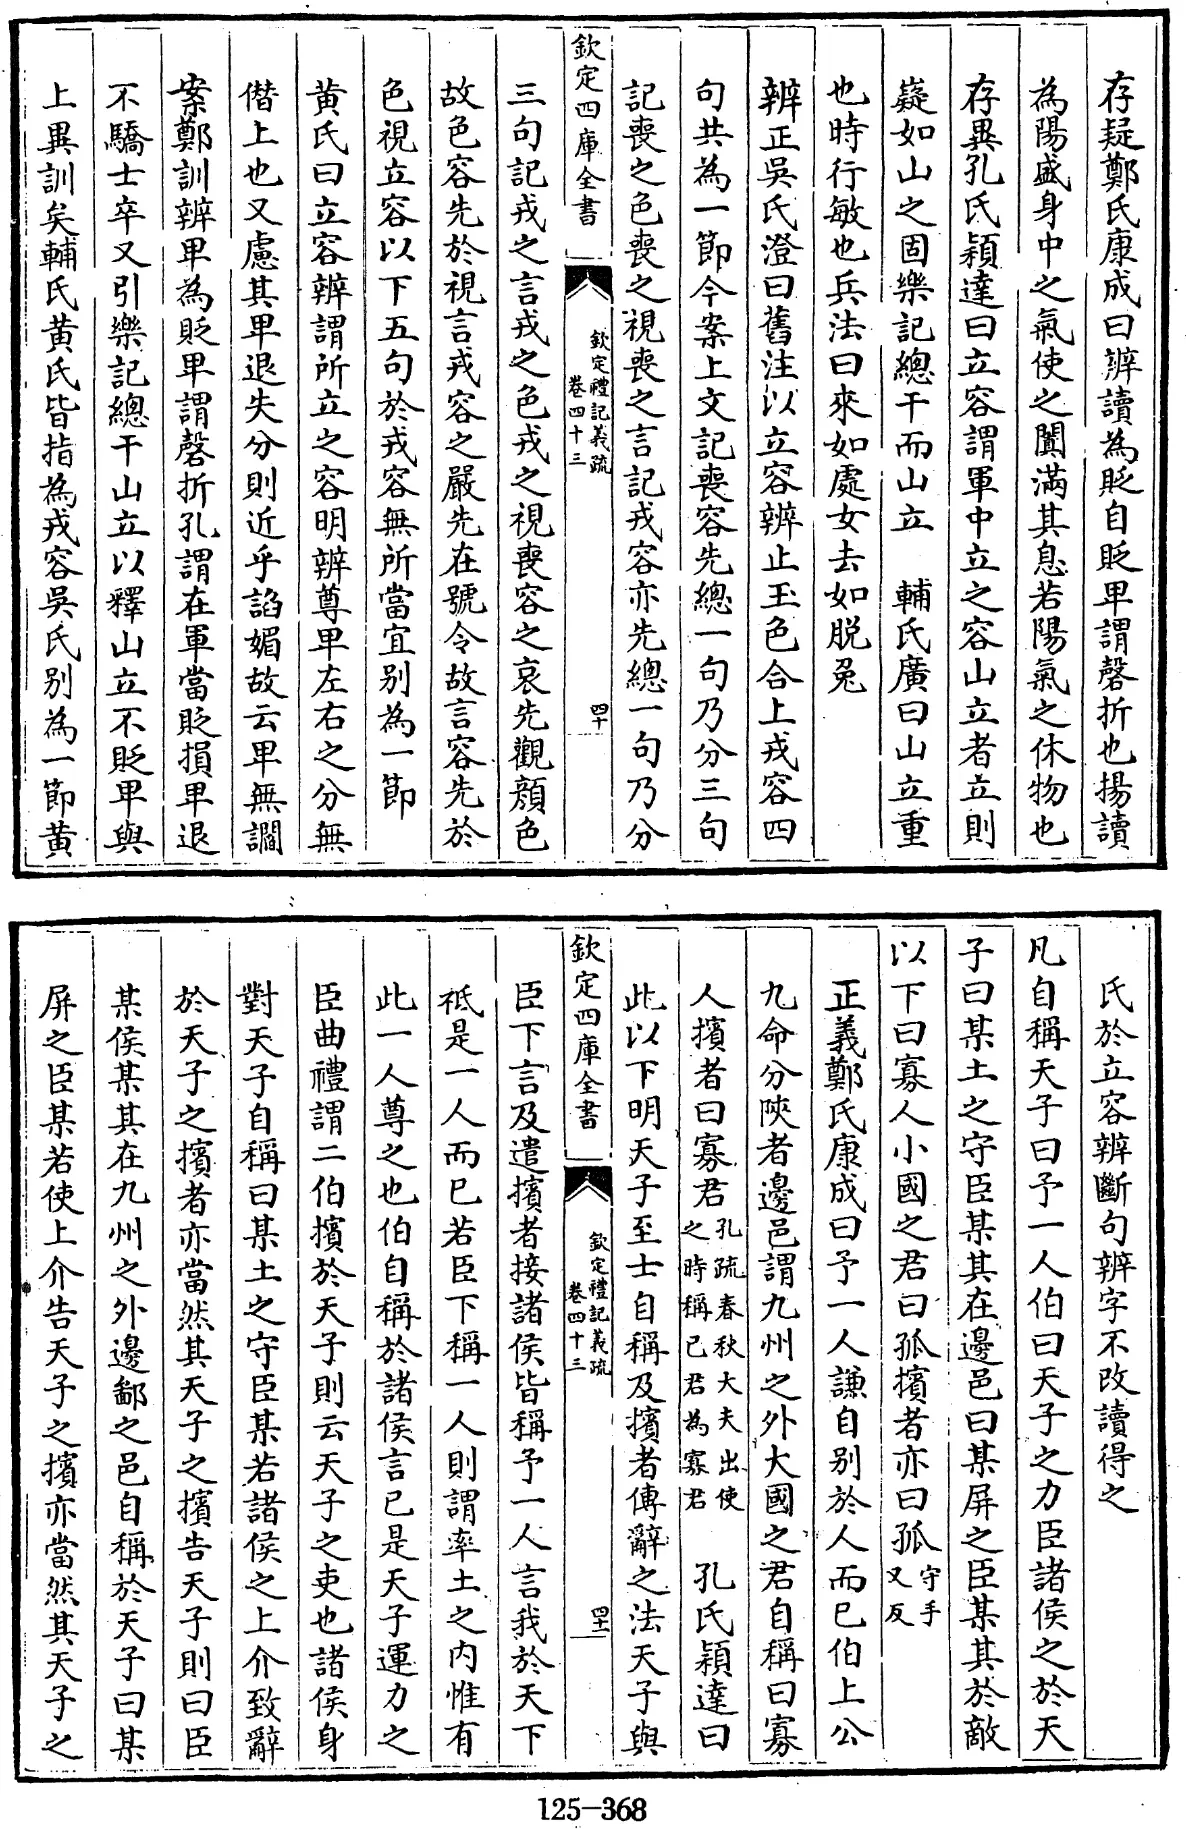 存疑鄭氏康成曰辨讀為貶自貶卑謂磬折也揚讀
為陽盛身中之氣使之闐滿其息若陽氣之休物也
存異孔氏穎達曰立容謂軍中立之容山立者立則
嶷如山之固樂記總干而山立　輔氏廣曰山立重
也時行敏也兵法曰來如處女去如脱兔
辨正吳氏澄曰舊注以立容辨止玉色合上戎容四
句共為一節今案上文記喪容先總一句乃分三句
記喪之色喪之視喪之言記戎容亦先總一句乃分
欽定四庫全書
欽定禮記義疏
卷四十三
四十
三句記戎之言戎之色戎之視喪容之哀先觀顔色
故色容先於視言戎容之嚴先在號令故言容先於
色視立容以下五句於戎容無所當宜别為一節
黄氏曰立容辨謂所立之容明辨尊卑左右之分無
僭上也又慮其卑退失分則近乎諂媚故云卑無讇
案鄭訓辨卑為貶卑謂磬折孔謂在軍當貶損卑退
不驕士卒又引樂記總干山立以釋山立不貶卑與
上異訓矣輔氏黄氏皆指為戎容吳氏别為一節黄
氏於立容辨斷句辨字不改讀得之
凡自稱天子曰予一人伯曰天子之力臣諸侯之於天
子曰某土之守臣某其在邊邑曰某屏之臣某其於敵
以下曰寡人小國之君曰孤擯者亦曰孤守手又反
正義鄭氏康成曰予一人謙自别於人而已伯上公
九命分陜者邊邑謂九州之外大國之君自稱曰寡
人擯者曰寡君孔疏春秋大夫出使之時稱已君為寡君　孔氏穎達曰
此以下明天子至士自稱及擯者傳辭之法天子與
欽定四庫全書
欽定禮記義疏
卷四十三
四十一
臣下言及遣擯者接諸侯皆稱予一人言我於天下
祗是一人而已若臣下稱一人則謂率土之内惟有
此一人尊之也伯自稱於諸侯言已是天子運力之
臣曲禮謂二伯擯於天子則云天子之吏也諸侯身
對天子自稱曰某土之守臣某若諸侯之上介致辭
於天子之擯者亦當然其天子之擯告天子則曰臣
某侯某其在九州之外邊鄙之邑自稱於天子曰某
屏之臣某若使上介告天子之擯亦當然其天子之
125-368